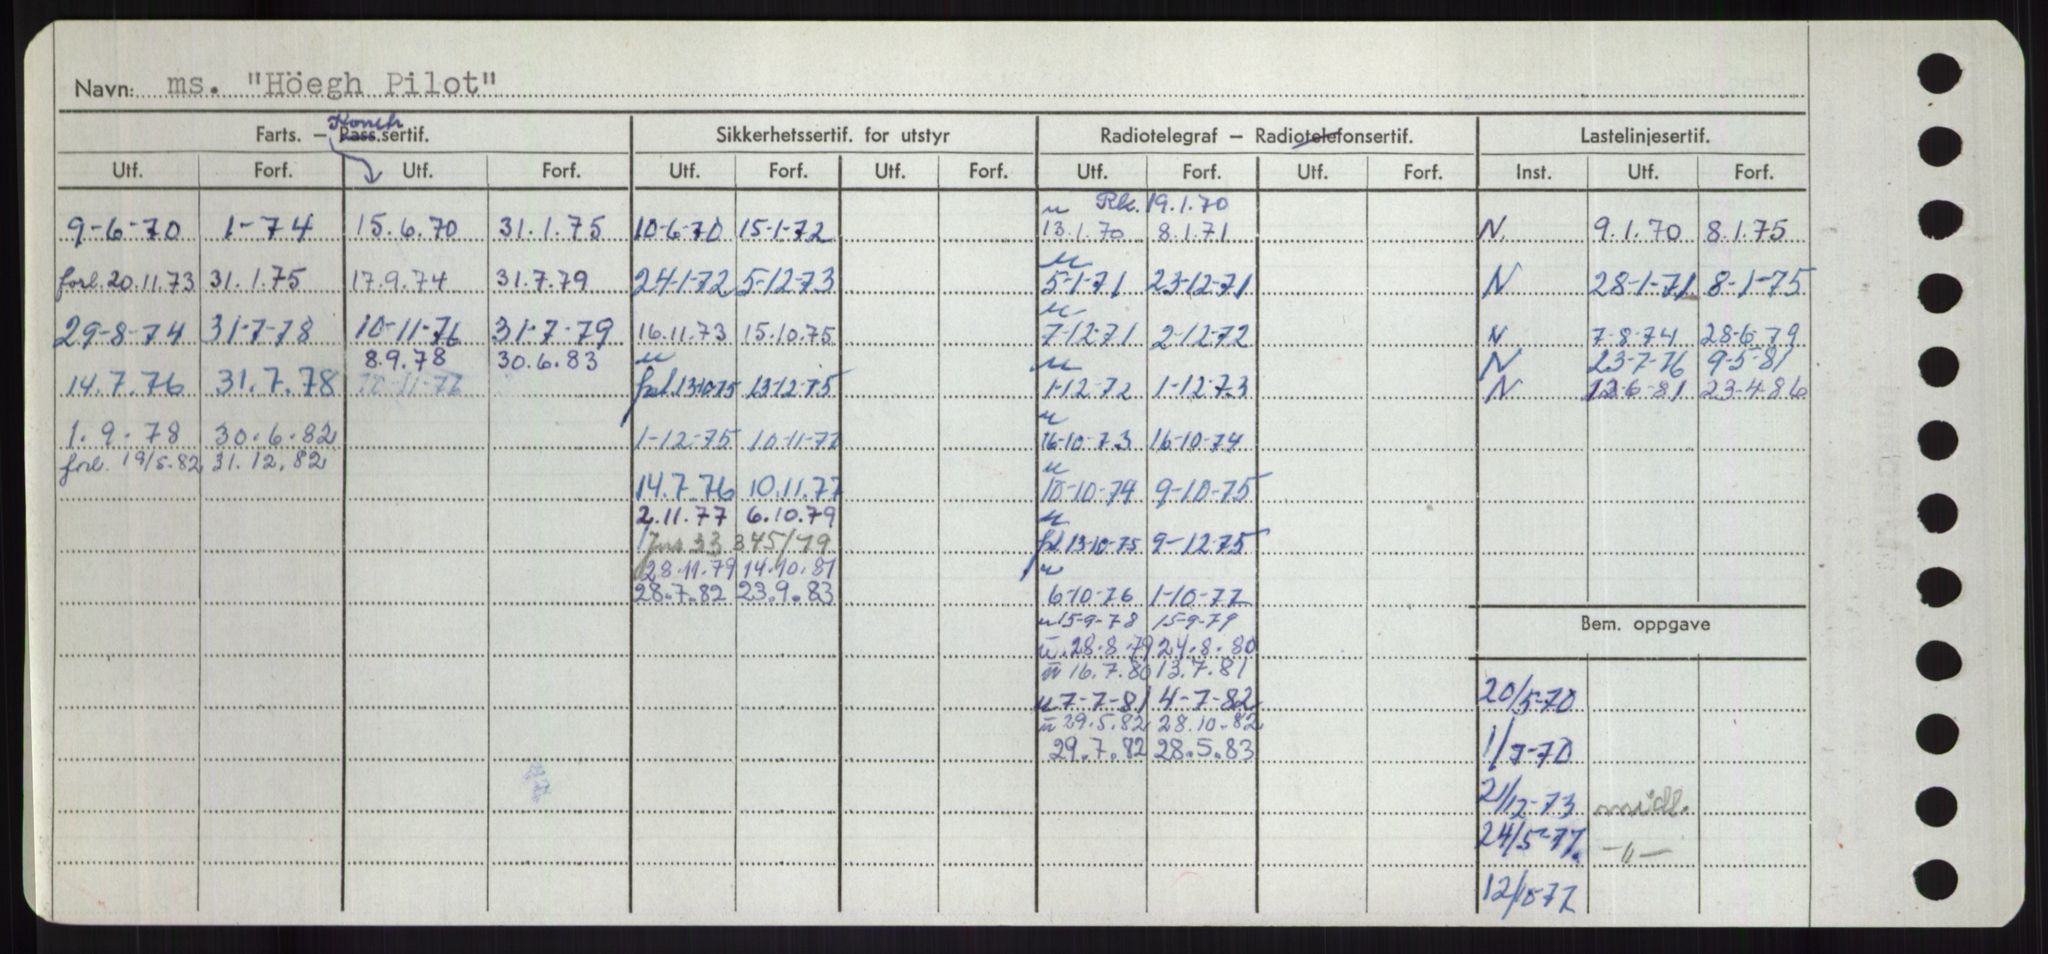 Navn: ms. "Höegh Pilot"
Konstr
Farts. – Pass.sertif. Sikkerhetssertif. for utstyr Radiotelegraf – Radiotelefonsertif. Lastelinjesertif.
Utf. Forf. Utf. Forf. Utf. Forf. Utf. Forf. Utf. Forf. Utf. Forf. Inst. Utf. Forf.
u Rk. 19.1.70
9-6-70 1-74 15.6.70 31.1.75 10-6-70 15-1-72 13.1.70 8.1.71 N. 9.1.70 8.1.75
u
forl. 20.11.73 31.1.75 17.9.74 31.7.79 24-1-72 5-12-73 5-1-71 23-12-71 N 28-1-71 8-1-75
u
29-8-74 31-7-78 10-11-76 31-7-79 16.11.73 15.10.75 7-12-71 2-12-72 N 7-8-74 28-6-79
8.9.78 30.6.83 u u N 23-7-76 9-5-81
14.7.76 31.7.78 10-11-76 forl. 13-10-75 13-12-75 1-12-72 1-12-73 N 12-6-81 23-4-86
u
1.9-78 30.6.82 1-12-75 10-11-77 16-10-73 16-10-74
forl. 19/5-82 31.12.82 u
14.7.76 10.11.77 10-10-74 9-10-75
2.11.77 6.10.79 u
345/79 fl. 13-10-75 9-12-75
28.11.79 14.10.81 u
28.7.82 23.9.83 6-10-76 1-10-77
u 15-9-78 15-9-79 Bem. oppgave
u. 28.8.79 24.8.80
u 16.7.80 13.7.81
u 7-7-81 4-7-82 20/5-70
u 29.5.82 28.10.82
29.7.82 28.5.83 1/7-70
21/12-73 midl.
24/5-77. -"-
12/10-77